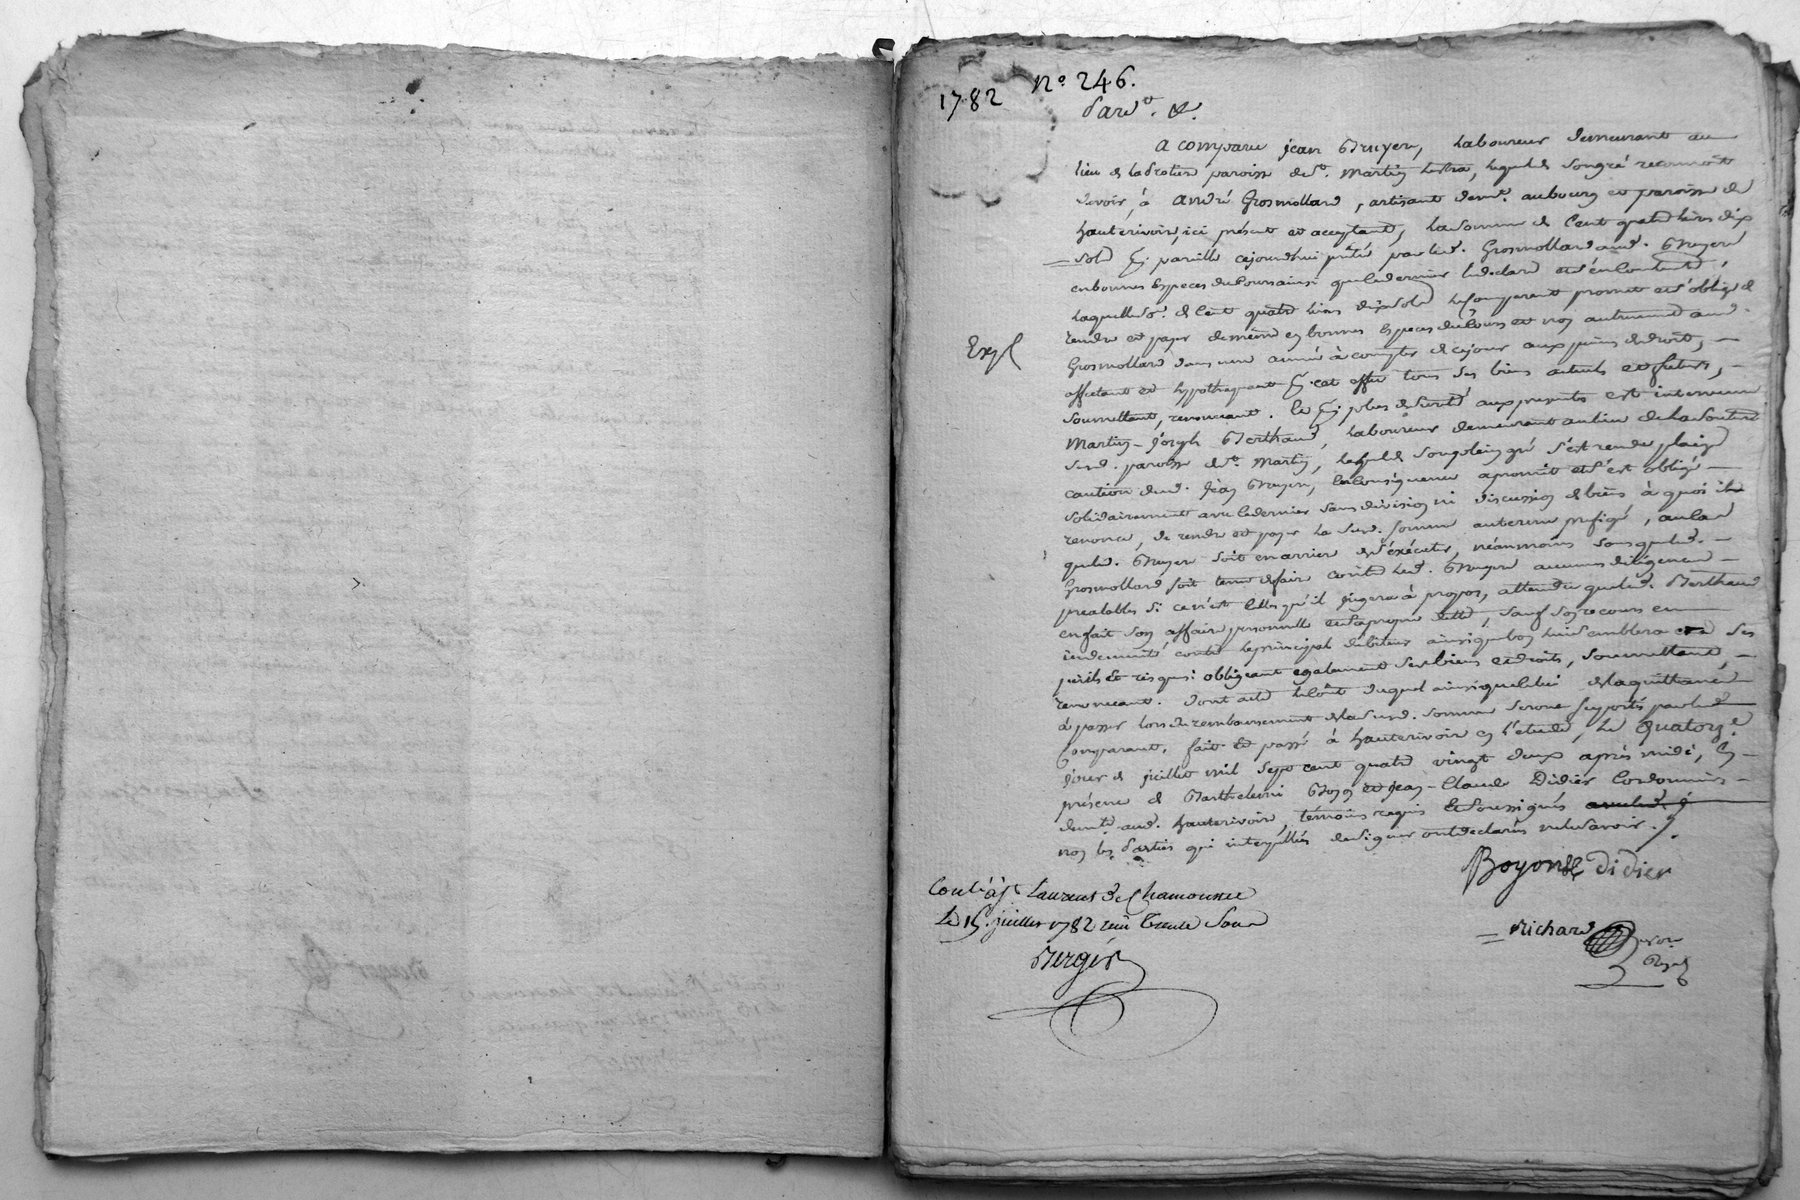 1782
N.o 246.
Pardt. &.
A comparu jean Bruyere, Laboureur demeurant au
lieu de paroisse de St. Martin Lestra, lequel de son gré reconnoît
devoir, à André Grosmollard, artisant demt. au bourg et paroisse de
hauterivoire, ici présent et acceptant, la somme de Cent quatre livres dix
sols pareille cejourdhui prêtée par led. Grosmollard aud. Bruyere
en bonnes Especes du Cours ainsi que le dernier le declare et s'en Contente,
laquelle so. de Cent quatre livres dix sols le Comparant promet et s'oblige de
rendre et payer de même en bonnes Especes du Cours et non autrement aud.
Expé
Grosmollard dans une année à compter de ce jour aux peines de droit,
affectant et hypothequant pr. cet effet tous ses biens actuels et futurs,
soumettant, renonceant. Et pr. plus de sureté aux presentes est intervenu
Martin-Joseph Berthaud, Laboureur demeurant au lieu de
sud. paroisse de St. Martin, lequel de son plein gré s'est rendu pleige
caution dud. Jean Bruyere, en Consequence a promit et s'est obligé
solidairement avec le dernier sans division ni discussion de biens à quoi il
renonce, de rendre et payer la susd. somme au terme prefigé, au cas
que led. Bruyere soit en arriere de s'executer, néanmoins sans que led.
Grosmollard soit tenu de faire contre led. Bruyere aucunes diligences
prealables si ce n'est celles qu'il jugera à propos, attendu que led. Berthaud
en fait son affaire personnelle et sa propre dette, sauf son recours en
indemnité contre le principal débiteur ainsi que bon lui semblera à ses
perils et risques: obligeant egalement ses biens et droits, soumettant,
renonceant. Dont acte le Coût duquel ainsi que celui de la quittance
à passer lors du remboursement de la susd. somme seront suportés par led.
Comparant. fait et passé à hauterivoire en l'etude, Le quatorze
jour de juillet mil sept cent quatre vingt deux après midi, En
présence de Barthelemi Boyon et Jean-Claude Didier Cordonniers
demt. aud. hauterivoire, témoins requis et soussignés
non les Parties qui interpellées de signer ont declarés ne le savoir.
Boyon Didier
Contlé à St. Laurent de Chamousset
Le 15. juillet 1782 reçu trente Sous
Richard
Bergér